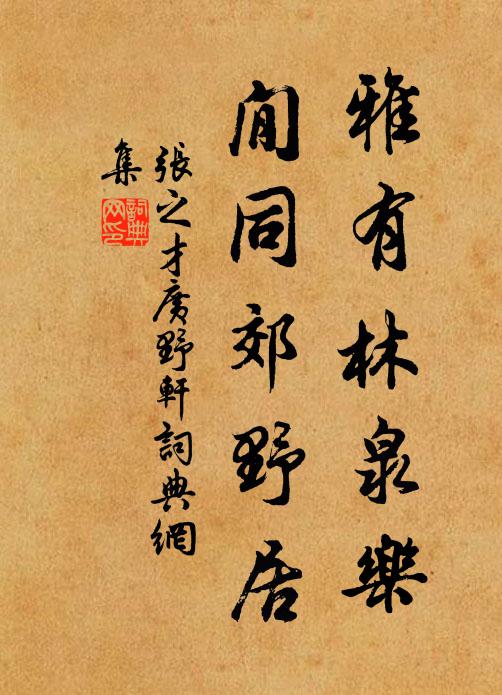 雅有林泉樂
閒同郊野居
張之才廣野軒詞典網
集
詞典
网印